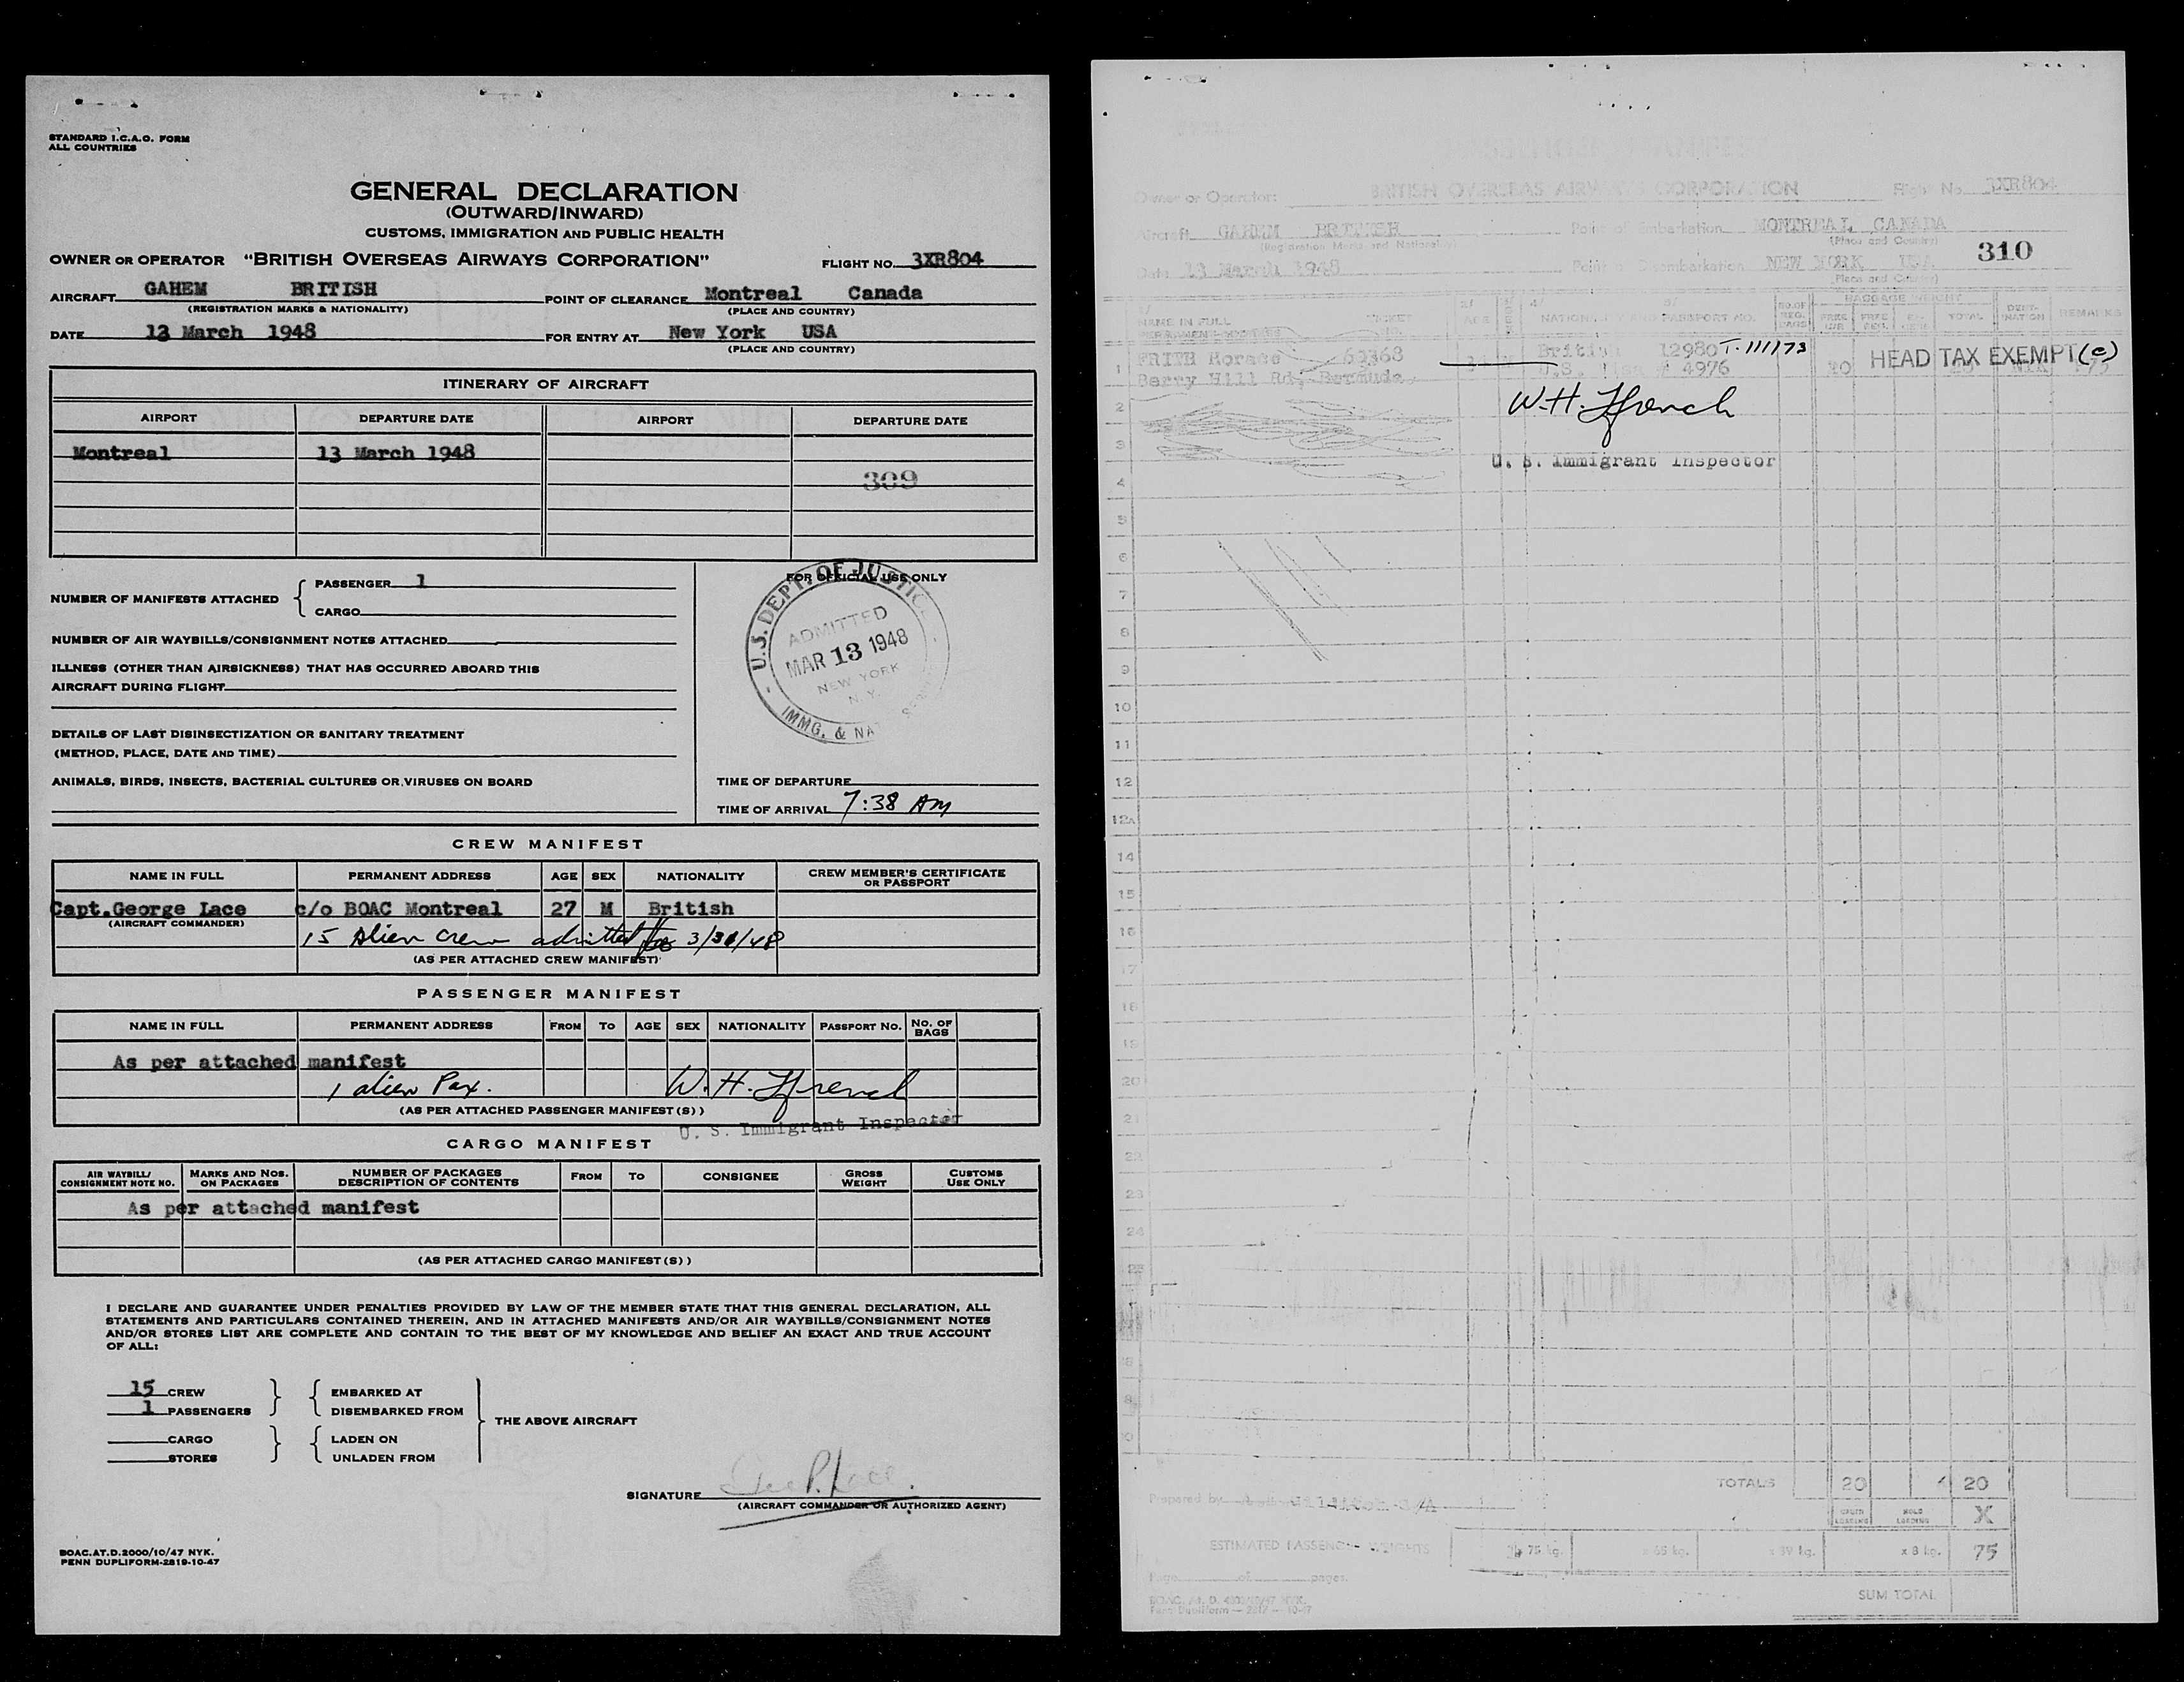 STANDARD I.C.A.O. FORM
ALL COUNTRIES
GENERAL DECLARATION
(OUTWARD/INWARD)
CUSTOMS, IMMIGRATION AND PUBLIC HEALTH
OWNER OR OPERATOR "BRITISH OVERSEAS AIRWAYS CORPORATION" FLIGHT NO. 3XR804
AIRCRAFT GAHEM BRITISH POINT OF CLEARANCE Montreal Canada
(REGISTRATION MARKS & NATIONALITY) (PLACE AND COUNTRY)
DATE 13 March 1948 FOR ENTRY AT New York USA
(PLACE AND COUNTRY)
ITINERARY OF AIRCRAFT
AIRPORT DEPARTURE DATE AIRPORT DEPARTURE DATE
Montreal 13 March 1948
309
NUMBER OF MANIFESTS ATTACHED PASSENGER 1
CARGO
NUMBER OF AIR WAYBILLS/CONSIGNMENT NOTES ATTACHED
ILLNESS (OTHER THAN AIRSICKNESS) THAT HAS OCCURRED ABOARD THIS
AIRCRAFT DURING FLIGHT
DETAILS OF LAST DISINSECTIZATION OR SANITARY TREATMENT
(METHOD, PLACE, DATE AND TIME)
ANIMALS, BIRDS, INSECTS, BACTERIAL CULTURES OR VIRUSES ON BOARD
FOR OFFICIAL USE ONLY
U.S. DEPT. OF JUSTICE
ADMITTED
MAR 13 1948
NEW YORK
N.Y.
IMMG. & NAT
TIME OF DEPARTURE
TIME OF ARRIVAL 7:38 AM
CREW MANIFEST
NAME IN FULL PERMANENT ADDRESS AGE SEX NATIONALITY CREW MEMBER'S CERTIFICATE OR PASSPORT
Capt.George Lace c/o BOAC Montreal 27 M British
(AIRCRAFT COMMANDER)
15 Alien crew admitted 3/30/48
(AS PER ATTACHED CREW MANIFEST)
PASSENGER MANIFEST
NAME IN FULL PERMANENT ADDRESS FROM TO AGE SEX NATIONALITY PASSPORT NO. NO. OF BAGS
As per attached manifest
1 alien Pax. W.H. Ffrench
(AS PER ATTACHED PASSENGER MANIFEST(S))
U. S. Immigrant Inspector
CARGO MANIFEST
AIR WAYBILL/ CONSIGNMENT NOTE NO. MARKS AND NOS. ON PACKAGES NUMBER OF PACKAGES DESCRIPTION OF CONTENTS FROM TO CONSIGNEE GROSS WEIGHT CUSTOMS USE ONLY
As per attached manifest
(AS PER ATTACHED CARGO MANIFEST(S))
I DECLARE AND GUARANTEE UNDER PENALTIES PROVIDED BY LAW OF THE MEMBER STATE THAT THIS GENERAL DECLARATION, ALL
STATEMENTS AND PARTICULARS CONTAINED THEREIN, AND IN ATTACHED MANIFESTS AND/OR AIR WAYBILLS/CONSIGNMENT NOTES
AND/OR STORES LIST ARE COMPLETE AND CONTAIN TO THE BEST OF MY KNOWLEDGE AND BELIEF AN EXACT AND TRUE ACCOUNT
OF ALL:
15 CREW EMBARKED AT
1 PASSENGERS DISEMBARKED FROM
THE ABOVE AIRCRAFT
CARGO LADEN ON
STORES UNLADEN FROM
SIGNATURE Geo P. Lace.
(AIRCRAFT COMMANDER OR AUTHORIZED AGENT)
BOAC.AT.D.2000/10/47 NYK.
PENN DUPLIFORM-2819-10-47
PASSENGER MANIFEST
Owner or Operator: BRITISH OVERSEAS AIRWAYS CORPORATION Flight No. 3XR804
Aircraft GAHEM BRITISH Point of Embarkation MONTREAL CANADA
(Registration Marks and Nationality) (Place and Country)
310
Date 13 March 1948 Point of Disembarkation NEW YORK USA
(Place and Country)
NAME IN FULL TICKET NO. AGE NATIONALITY AND PASSPORT NO. NO. OF REG. BAGS BAGGAGE WEIGHT TOTAL DESTINATION REMARKS
PERMANENT ADDRESS
1 FRITH Horace 69368 British 12980 T-111173
Berry Hill Rd, Bermuda U.S. Visa # 4976 20 HEAD TAX EXEMPT (e) 75
2 W.H. Ffrench
3 U. S. Immigrant Inspector
4
5
6
7
8
9
10
11
12
12A
14
15
16
17
18
19
20
21
22
23
24
25
TOTALS 20 20
Prepared by
X
ESTIMATED PASSENGER WEIGHTS 75 kg. x 65 kg. x 39 kg. x 8 kg. 75
Page of pages.
SUM TOTAL
BOAC. At. D. 4000/10/47 NYK.
Penn Dupliform — 2817 — 10-47